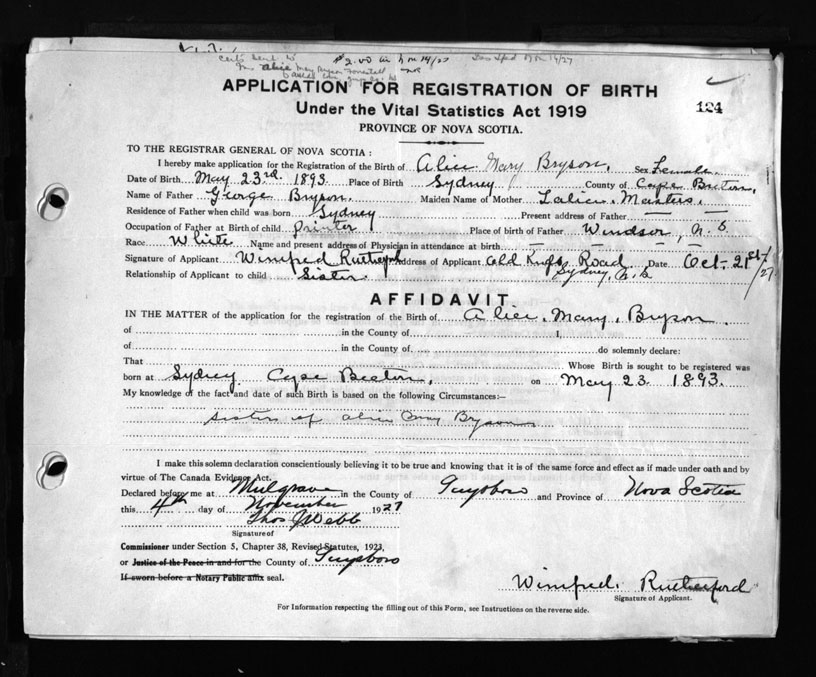 $2.00
Alice May Bryson
APPLICATION FOR REGISTRATION OF BIRTH
Under the Vital Statistics Act 1919
124
PROVINCE OF NOVA SCOTIA.
TO THE REGISTRAR GENERAL OF NOVA SCOTIA :
I hereby make application for the Registration of the Birth of Alice Mary Bryson, Sex Female.
Date of Birth May 23rd 1893 Place of Birth Sydney County of Cape Breton,
Name of Father George Bryson. Maiden Name of Mother Masters.
Residence of Father when child was born Sydney Present address of Father — —
Occupation of Father at Birth of child printer Place of birth of Father Windsor, N. S
Race White Name and present address of Physician in attendance at birth — — — —
Signature of Applicant Winifred Rutherford Address of Applicant Road Date Oct. 21st/27
Sydney, N.S.
Relationship of Applicant to child Sister.
AFFIDAVIT.
IN THE MATTER of the application for the registration of the Birth of Alice. Mary. Bryson.
of in the County of I,
of in the County of do solemnly declare:
That Whose Birth is sought to be registered was
born at Sydney Cape Breton, on May 23 1893.
My knowledge of the fact and date of such Birth is based on the following Circumstances:—
sister of Alice May Bryson
I make this solemn declaration conscientiously believing it to be true and knowing that it is of the same force and effect as if made under oath and by
virtue of The Canada Evidence Act.
Declared before me at Mulgrave in the County of Guysboro and Province of Nova Scotia
this 4th day of November 1927
Thos Webb
Signature of
Commissioner under Section 5, Chapter 38, Revised Statutes, 1923,
or Justice of the Peace in and for the County of Guysboro
If sworn before a Notary Public affix seal.
Winifred. Rutherford
Signature of Applicant.
For Information respecting the filling out of this Form, see Instructions on the reverse side.